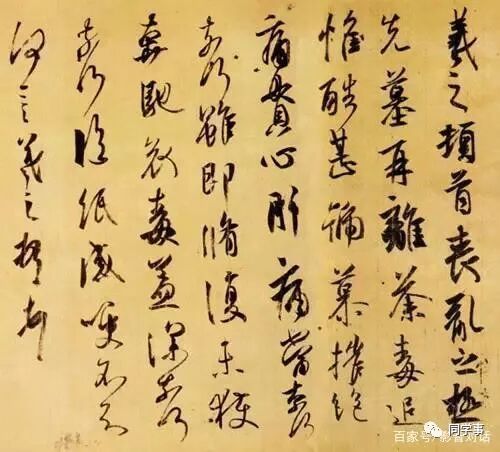 羲之頓首喪亂之極
先墓再離荼毒追
惟酷甚號慕摧絕
痛貫心肝痛當奈何
奈何雖即脩復未獲
奔馳哀毒益深奈何
奈何臨紙感哽不知
何言羲之頓首頓首
百家号
同学事